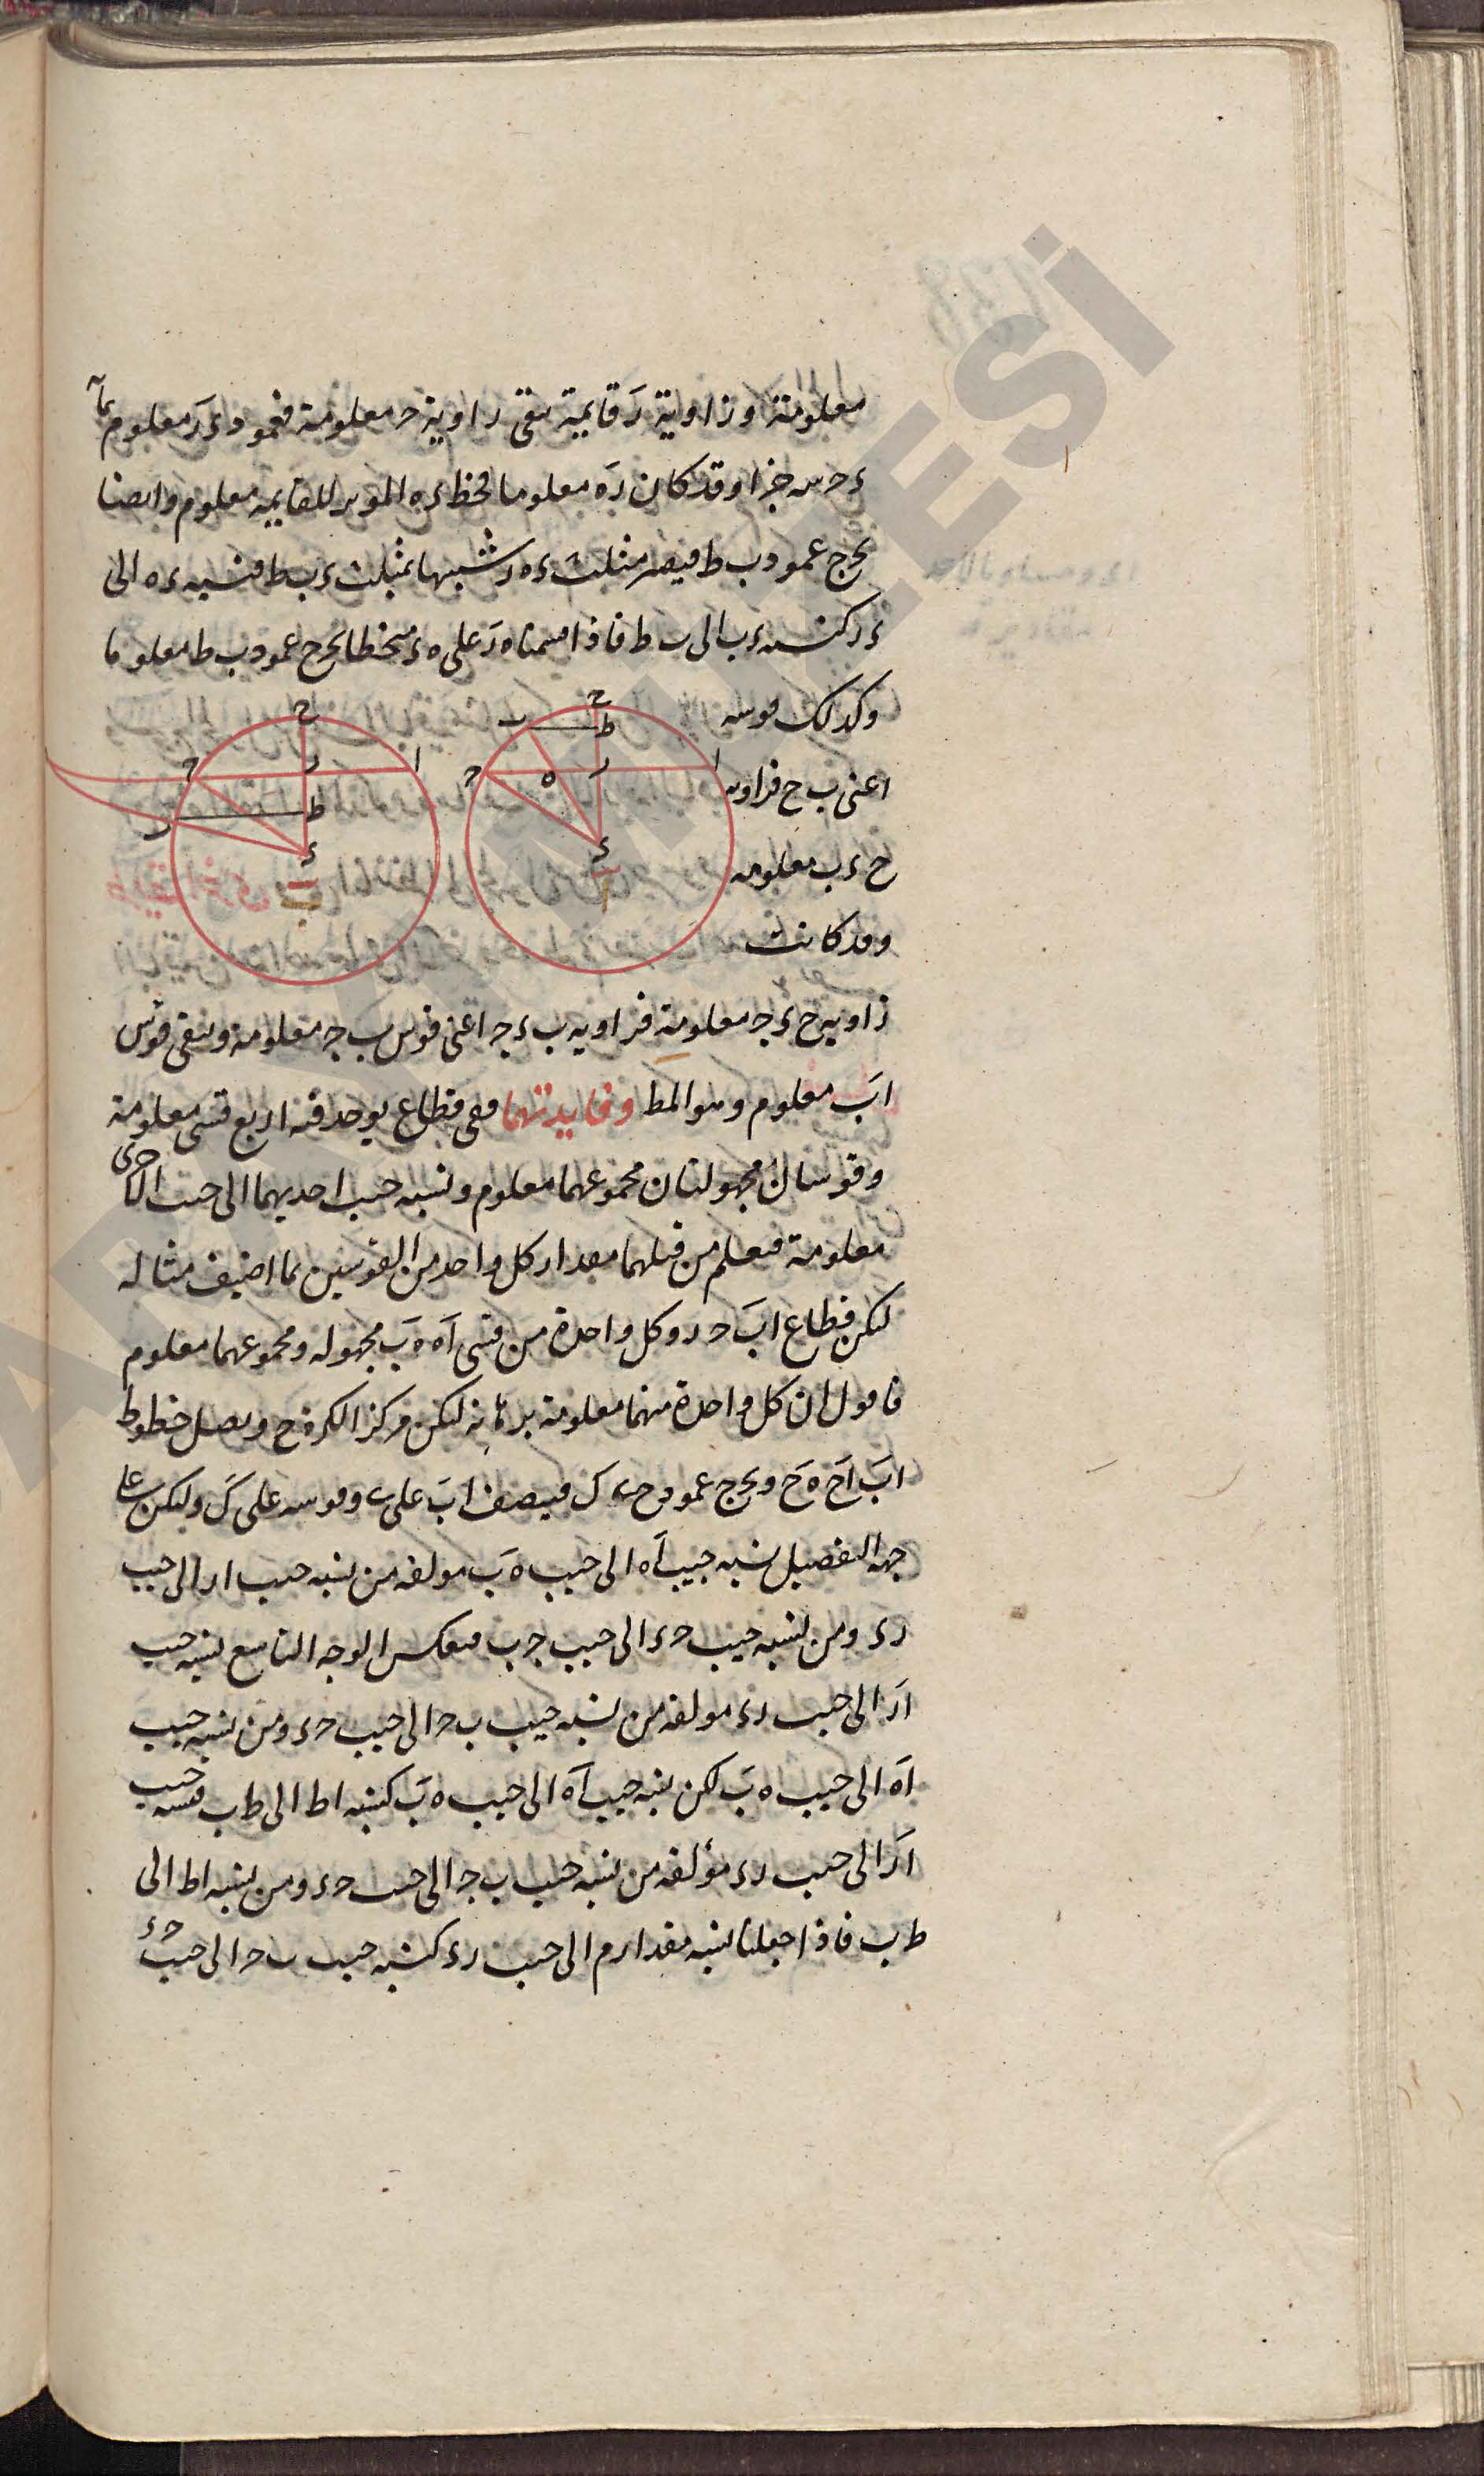 معلومة وزاوية ر قايمة تبقى زاوية ح معلومة فعمود ء ر معلوم بما
ء ح سه جزا وقد كان ر ه معلوما فخط ء ه الموتر للقايمه معلوم وايضا
نخرج عمود ب ط فيصير مثلث ء ه ر شبيها بمثلث ء ب ط فنسبه ء ه الى
ء ر كنسبه ء ب الى ب ط فاذا قسمناه ر على ه ء منحطا يخرج عمود ب ط معلوما
وكذلك قوسه
اعنى ب ح فزاويه
ح ء ب معلومه
وقد كانت
زاويه ح ء جـ معلومة فزاويه ب ء جـ اعنى قوس ب جـ معلومة وتبقى قوس
ا ب معلوم وهو المط وفايدتهما ففى قطاع يوجد فيه اربع قسى معلومة
وقوسان مجهولتان مجموعهما معلوم ونسبه جيب احديهما الى جيب الاخرى
معلومة فيعلم من قبلهما مقدار كل واحد من القوسين بما اضيف مثاله
لكن قطاع ا ب ح د ر وكل واحدة من قسى ا ه ه ب مجهوله ومجموعهما معلوم
فاقول ان كل واحدة منهما معلومة برهانه ليكن مركز الكره ح ونصل خطوط
ا ب ا ح ه ح ونخرج عمود ح ى ك فينصف ا ب على ى وقوسه على ك وليكن على
جهه التفصيل نسبه جيب ا ه الى جيب ه ب مولفه من نسبه جيب ا ر الى جيب
ر ء ومن نسبه جيب ح ء الى جيب جـ ب فبعكس الوجه التاسع نسبه جيب
ا ر الى جيب ر ء مولفه من نسبه جيب ب ح الى جيب ح ء ومن نسبه جيب
ا ه الى جيب ه ب لكن نسبه جيب ا ه الى جيب ه ب كنسبه ا ط الى ط ب فنسبه جيب
ا ر الى جيب ر ء مؤلفه من نسبه جيب ب جـ الى جيب ح ء ومن نسبه ا ط الى
ط ب فاذا جعلنا نسبه مقدار م الى جيب ر ء كنسبه جيب ب ح الى جيب ح ء
ح
ط
ب
ا
ر
ه
ح
ء
ح
ا
ر
ح
ط
ب
ء